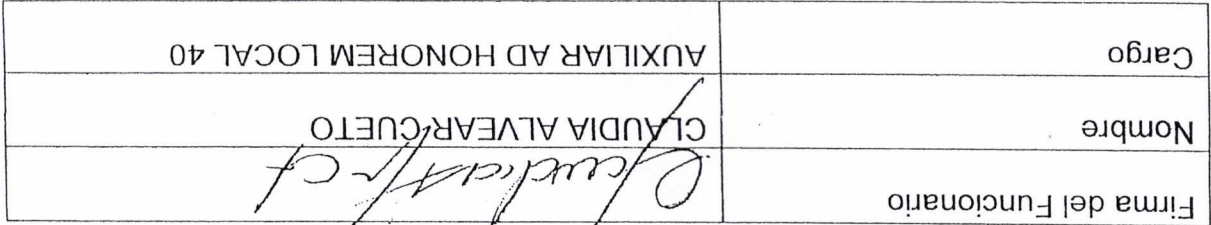 Firma del Funcionario
Nombre CLAUDIA ALVEAR CUETO
Cargo AUXILIAR AD HONOREM LOCAL 40